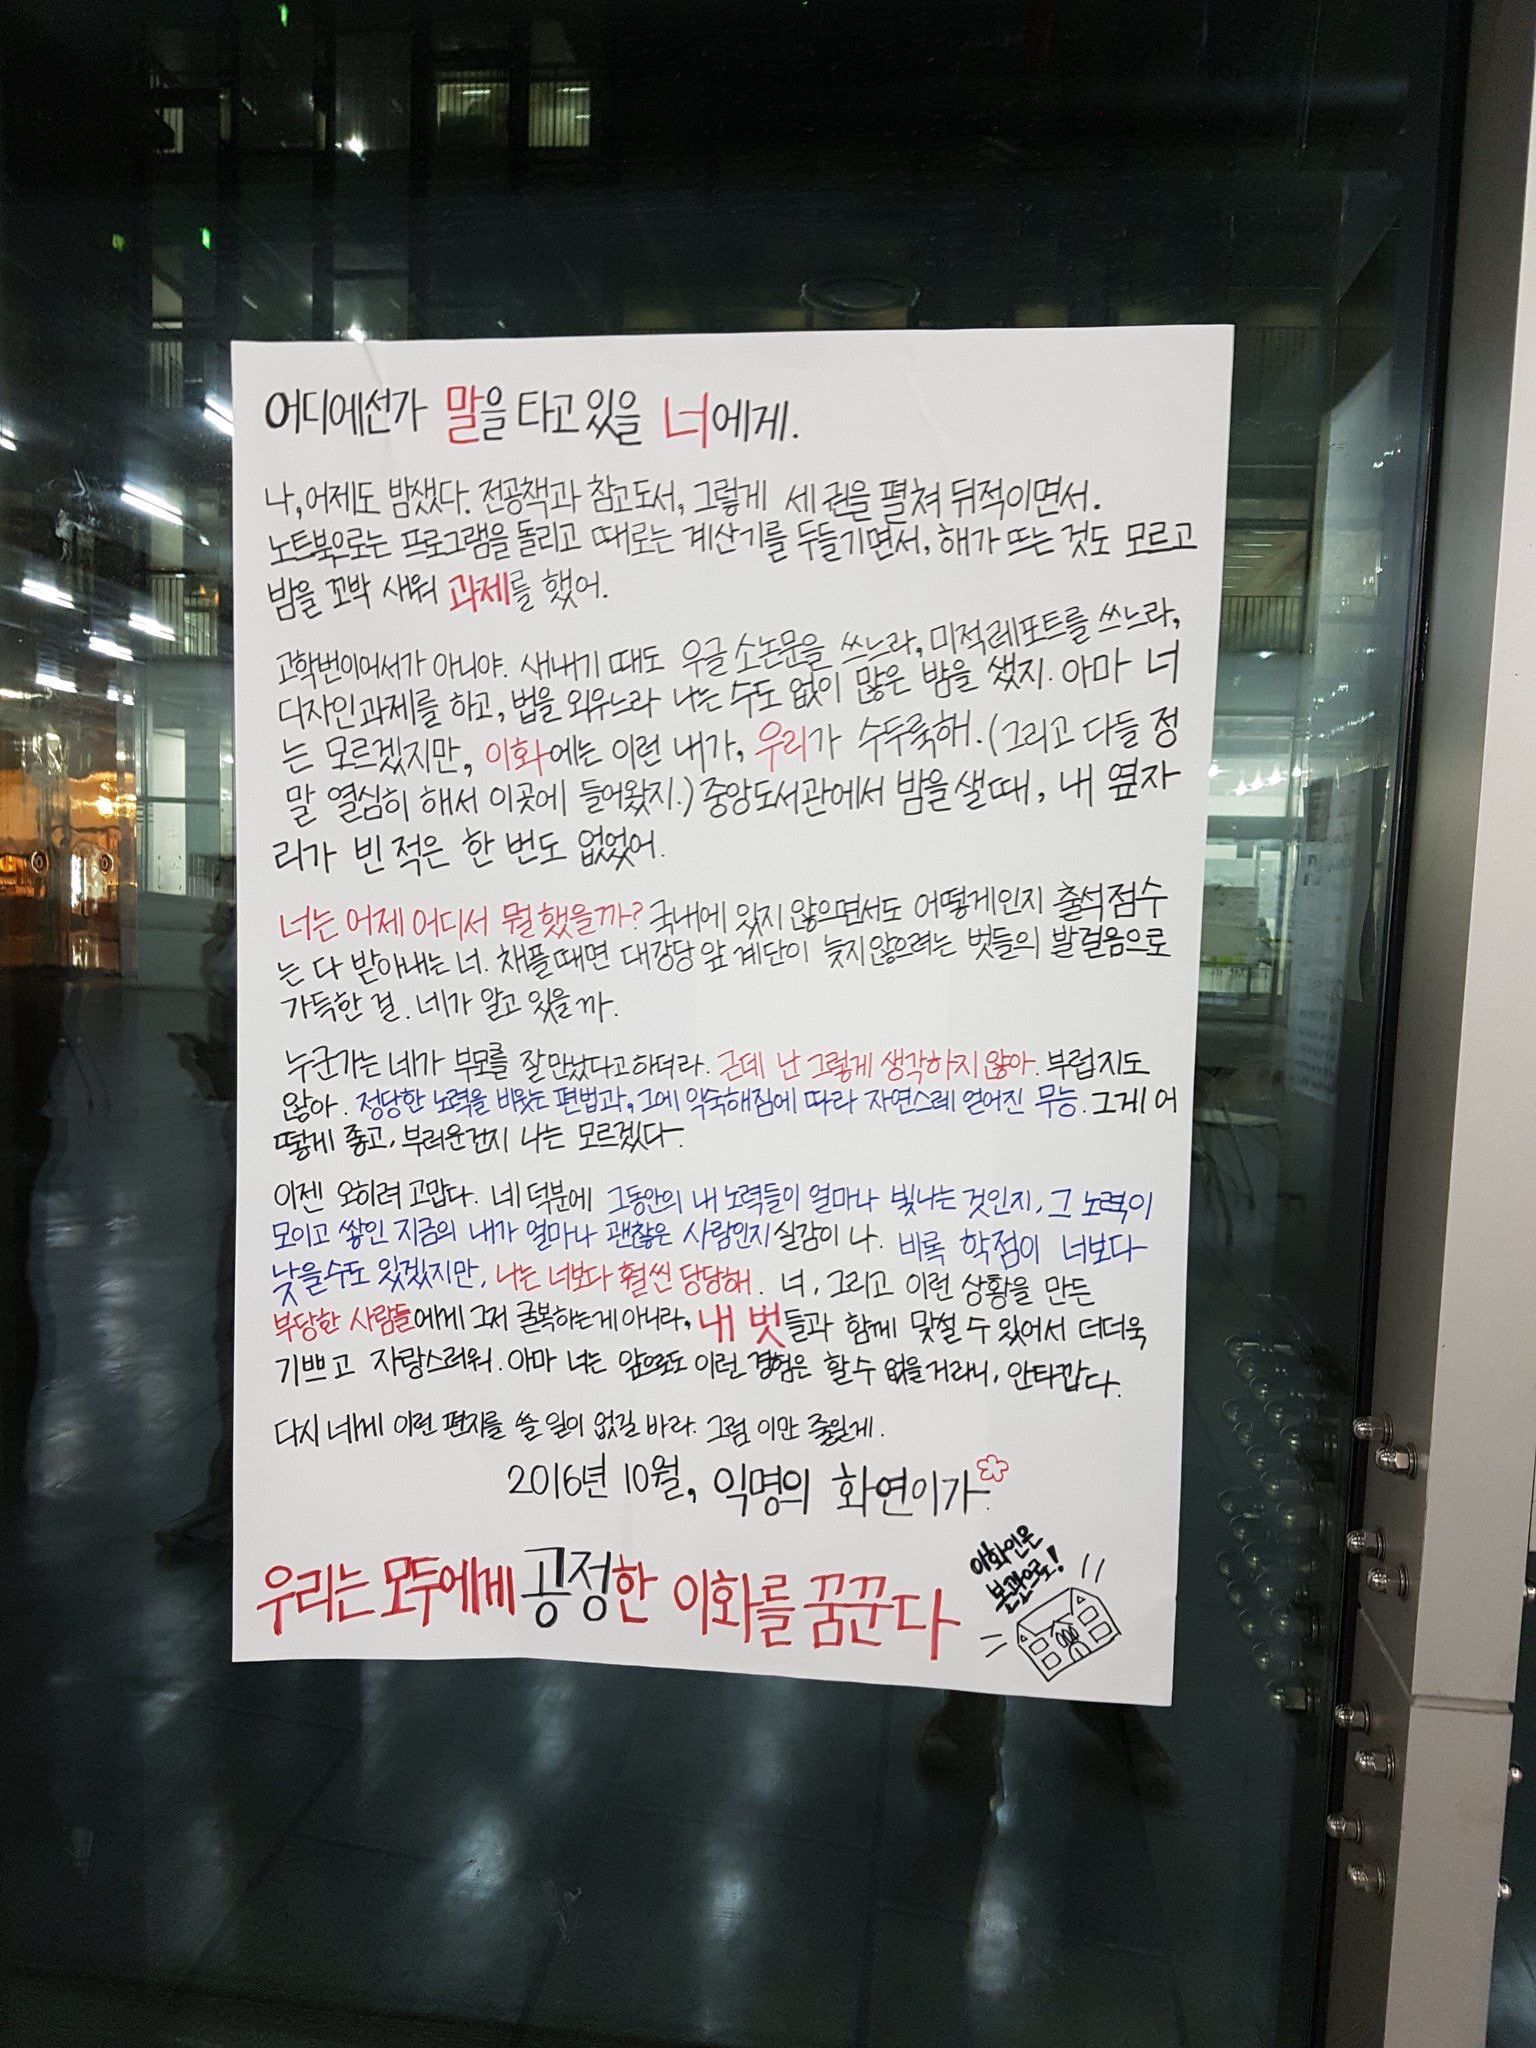 어디에선가 말을 타고 있을 너에게.
나, 어제도 밤샜다. 전공책과 참고도서, 그렇게 세 권을 펼쳐 뒤적이면서.
노트북으로는 프로그램을 돌리고 때로는 계산기를 두들기면서, 해가 뜨는 것도 모르고
밤을 꼬박 새워 과제를 했어.
고학번이어서가 아니야. 새내기 때도 우글 소논문을 쓰느라, 미적레포트를 쓰느라,
디자인과제를 하고, 법을 외우느라 나는 수도 없이 많은 밤을 샜지. 아마 너
는 모르겠지만, 이화에는 이런 내가, 우리가 수두룩해. (그리고 다들 정
말 열심히 해서 이곳에 들어왔지.) 중앙도서관에서 밤을 샐 때, 내 옆자
리가 빈 적은 한 번도 없었어.
너는 어제 어디서 뭘 했을까? 국내에 있지 않으면서도 어떻게인지 출석점수
는 다 받아내는 너. 채플때면 대강당 앞 계단이 늦지않으려는 벗들의 발걸음으로
가득한 걸. 네가 알고 있을까.
누군가는 네가 부모를 잘 만났다고 하더라. 근데 난 그렇게 생각하지 않아. 부럽지도
않아. 정당한 노력을 비웃는 편법과, 그에 익숙해짐에 따라 자연스레 얻어진 무능. 그게 어
떻게 좋고, 부러운건지 나는 모르겠다.
이젠 오히려 고맙다. 네 덕분에 그동안의 내 노력들이 얼마나 빛나는 것인지, 그 노력이
모이고 쌓인 지금의 내가 얼마나 괜찮은 사람인지 실감이 나. 비록 학점이 너보다
낮을수도 있겠지만, 나는 너보다 훨씬 당당해. 너, 그리고 이런 상황을 만든
부당한 사람들에게 그저 굴복하는게 아니라, 내 벗들과 함께 맞설 수 있어서 더더욱
기쁘고 자랑스러워. 아마 너는 앞으로도 이런 경험은 할 수 없을거라니, 안타깝다.
다시 네게 이런 편지를 쓸 일이 없길 바라. 그럼 이만 줄일게.
2016년 10월, 익명의 화연이가
이화인은
본관으로!
우리는 모두에게 공정한 이화를 꿈꾼다